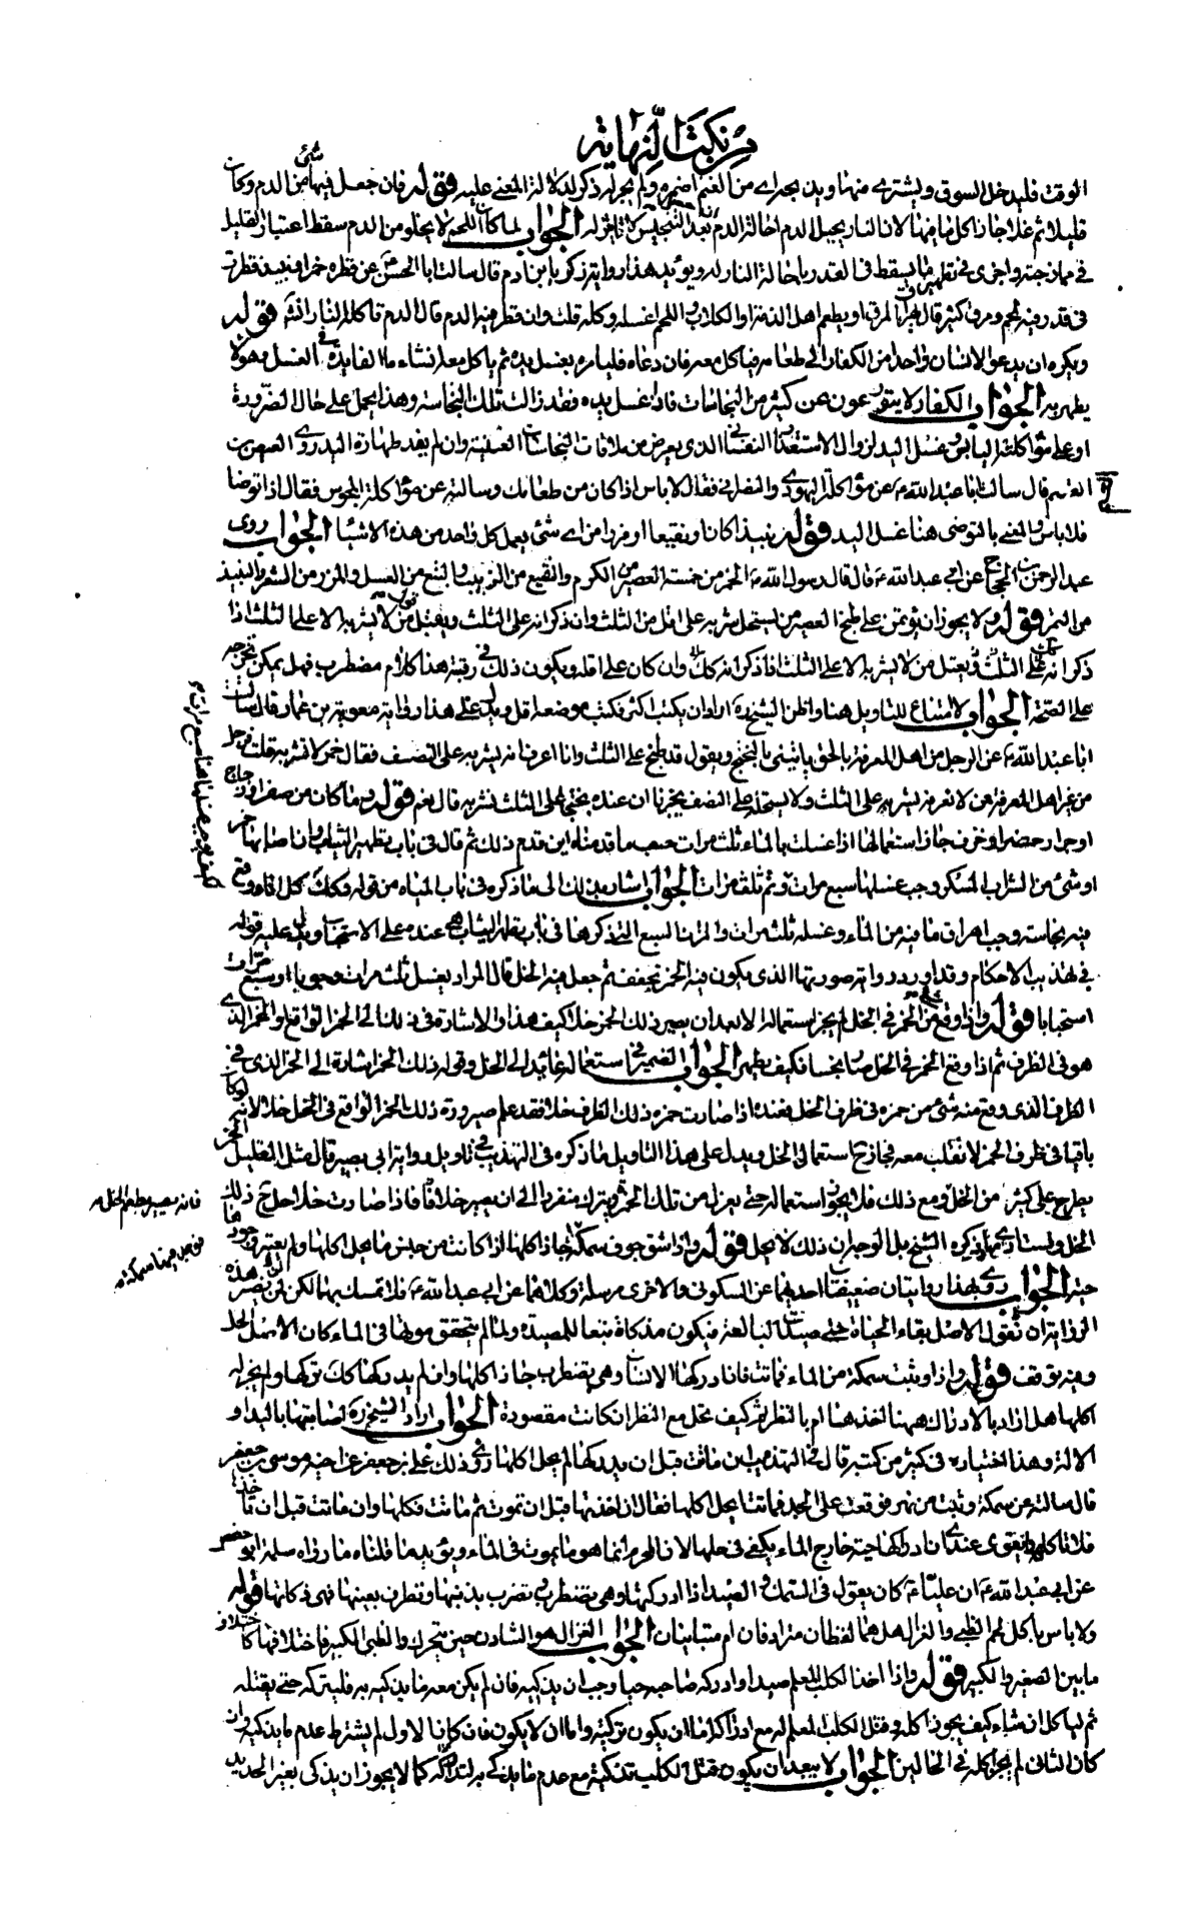 من نكت النهاية
الوقت فليدخل السوق ويشترى منها وبدن يجزى من الغنم اضمره ولم يجز له ذكر لدلالة المعنى عليه فقوله فان جعل فيها شئ من الدم وكان
قليلا ثم غلا جاز اكل ما فيها لان النار يحيل الدم احالة الدم بعد التنجيس لا تاثير له الجواب لما كان اللحم لا يخلو من الدم سقط اعتبار القليل
فى ممازجته واجزى فى تطهير ما يسقط فى القدر باحالة النار له ويؤيد هذا رواية زكريا بن ادم قال سالت ابا الحسن عن قطرة خمر او نبيذ قطرت
فى قدر فيه لحم ومرق كثير قال يهراق المرق او يطعم اهل الذمة او الكلاب واللحم اغسله وكله قلت وان قطر فيه الدم قال الدم تاكله النار انشاء الله فقوله
ويكره ان يدعو الانسان واحدا من الكفار الى طعامه فياكل معه فان دعاه فليامره بغسل يده ثم ياكل معه انشاء ما الفايدة فى الغسل وهو لا
يطهر به الجواب الكفار لا يتورعون عن كثير من النجاسات فاذا غسل يده فقد زالت تلك النجاسة وهذا يحمل على حال الضرورة
او على مؤاكلة اليابس وغسل اليد لزوال الاستقذار النفسانى الذى يعرض من ملاقات النجاسات العينية وان لم يفد طهارة اليد روى العيص بن
القسم قال سالت ابا عبد الله ع عن مؤاكلة اليهودى والنصرانى فقال لا باس اذا كان من طعامك وسالته عن مؤاكلة المجوس فقال اذا توضا
فلا باس والمعنى بالتوضى هنا غسل اليد فقوله نبيذا كان او نقيعا او مزرا من اى شئ يعمل كل واحد من هذه الاشياء الجواب روى
عبد الرحمن بن الحجاج عن ابى عبد الله ع قال قال رسول الله ص الخمر من خمسة العصير من الكرم والنقيع من الزبيب والبتع من العسل والمزر من الشعير والنبيذ
من التمر فقوله ولا يجوز ان يؤتمن على طبخ العصير من يستحل شربه على اقل من الثلث وان ذكر انه على الثلث ويقبل قول من لا يشربه الا على الثلث اذا
ذكر انه كك على الثلث ويقبل من لا يشربه الا على الثلث اذا ذكر انه كك وان كان على اقله ويكون ذلك فى رقبته هذا كلام مضطرب فهل يمكن تخريجه
على الصحة الجواب لا امتناع للتاويل هنا واظن الشيخ ره اراد ان يكتب اكثر فكتب موضعه اقل ويدل على هذا رواية معوية بن عمار قال سالت
ابا عبد الله ع عن الرجل من اهل المعرفة بالحق ياتينى بالبختج ويقول قد طبخ على الثلث وانا اعرف انه يشربه على النصف فقال خمر لا تشربه قلت فرجل
من غير اهل المعرفة ممن لا نعرفه يشربه على الثلث ولا يستحله على النصف يخبرنا ان عنده بختجا على الثلث نشربه قال نعم فقوله وما كان من صفر او زجاج
او جرار خضر او خزف جاز استعمالها اذا غسلت بالماء ثلث مرات حسب ما قدمناه اين قدم ذلك ثم قال فى باب تطهير الثياب وان اصابها خمر
او شئ من الشراب المسكر وجب غسلها سبع مرات وثم ثلث مرات الجواب اشار بذلك الى ما ذكره فى باب المياه من قوله وكك كل اناء وقع
فيه نجاسة وجب اهراق ما فيه من الماء وغسله ثلث مرات والمرات السبع التى ذكرها فى باب تطهير الثياب هى عنده على الاستحباب ويدل عليه قوله
فى تهذيب الاحكام وقد اورد رواية صورتها الذى يكون فيه الخمر يجفف ثم جعل فيه الخل قال المراد يغسل ثلث مرات وجوبا او سبع مرات
استحبابا فقوله واذا وقع شئ من الخمر فى الخل لم يجز استعماله الا بعد ان يصير ذلك الخمر خلا كيف هذا والاشارة فى ذلك الى الخمر الواقع او الخمر الذى
هو فى الظرف ثم اذا وقع الخمر فى الخل صار نجسا فكيف يطهر الجواب الضمير فى استعماله عايد الى الخل وقوله ذلك الخمر اشارة الى الخمر الذى فى
الظرف الذى وقع منه شئ من خمره فى ظرف الخل فعنده اذا صارت خمره ذلك الظرف خلا فقد علم صيرورة ذلك الخمر الواقع فى الخل خلا لانه لو كان
باقيا فى ظرف الخمر لانقلب معه فجاز ح استعمال الخل ويدل على هذا التاويل ما ذكره فى التهذيب فى تاويل رواية ابى بصير قال مثل القليل من الخمر
يطرح على كثير من الخل ومع ذلك فلا يجوز استعماله حتى يعزل من تلك الخمرة ويترك منفردا الى ان يصير خلا فاذا صارت خلا حل ح ذلك
الخل ولست ارى بما ذكره الشيخ بل الوجه ان ذلك لا يحل فقوله واذا شق جوف سمكة جاز اكلها اذا كانت من جنس ما يحل اكلها ولم يعتبر وجودها
حية الجواب روى بهذا روايتان ضعيفتان احديهما عن السكونى والاخرى مرسلة وكلاهما عن ابى عبد الله ع فلا تمسك بهما لكن لمن ينصر هذه
الرواية ان نقول الاصل بقاء الحياة حتى صيدت البالعة فيكون مذكاة تبعا للصيد ولما لم يتحقق موتها فى الماء كان الاصل الحل
وفيه توقف فقوله واذا وثبت سمكة من الماء فماتت فان ادركها الانسان وهى تضطرب جاز اكلها وان لم يدركها كك تركها ولم يجز له
اكلها هل اراد بالادراك ههنا اخذها ام بالنظر ثم كيف تحل مع النظر ان كانت مقصودة الجواب اراد الشيخ ره اصابتها باليد او
الالة وهذا اختياره فى كثير من كتبه قال فى التهذيب ان ماتت قبل ان يدركها لم يحل اكلها روى ذلك على بن جعفر عن اخيه موسى بن جعفر
قال سالته عن سمكة وثبت من نهر فوقعت على الجد فماتت ايحل اكلها فقال ان اخذتها قبل ان تموت ثم ماتت فكلها وان ماتت قبل ان تاخذها
فلا تاكلها ويقوى عندى ان ادراكها حية خارج الماء يكفى فى حلها لان المحرم انما هو ما يموت فى الماء ويؤيد ما قلناه ما رواه سلمة ابو حفص
عن ابى عبد الله ع ان عليا ع كان يقول فى السمك والصيد اذا ادركتها وهى تضطرب وتضرب بذنبها وتطرف بعينها فهى ذكاتها فقوله
ولا باس باكل لحم الظبى والغزال هل هما لفظان مترادفان ام متباينان الجواب الغزال هو الشادن حين يتحرك والظبى الكبير فاختلافهما كاختلاف
ما بين الصغير والكبير فقوله واذا اخذ الكلب المعلم صيدا وادركه صاحبه حيا وجب ان يذكيه فان لم يكن معه ما يذكيه به فليتركه حتى يقتله
ثم لياكل ان شاء كيف يجوز اكله وقتل الكلب المعلم له مع ادراكه اما ان يكون تزكية واما ان لا يكون فان كان الاول لم يشترط عدم ما يذكيه وان
كان الثانى لم يجز اكله فى الحالين الجواب لا يبعد ان يكون قتل الكلب تذكية مع عدم ما يذكى به لتداركه كما لا يجوز ان يذكى بغير الحديد
فانه يصير بطعم الخل